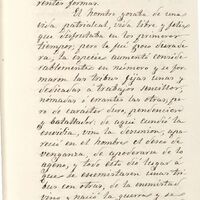 rentes formas.
El hombre gozaba de una
vida patriarcal, vida libre y feliz
que disfrutaba en los primeros
tiempos; pero le fué poco durade
ra; la especie aumentó consid
erablemente en número y se for
maron las tribus fijas unas y
dedicadas a trabajos sencillos,
nomadas i errantes las otras, pe
ro de carácter duro, pendenciero
y batallador, de aquí cundió la
envidia, vino la desunion, apa
reció en el hombre el deseo de
venganza, de apoderarse de lo
ageno, y todo esto dió lugar á
que se enemistasen unas tri
bus con otras, de la enemistad
vino y nació la guerra, y se